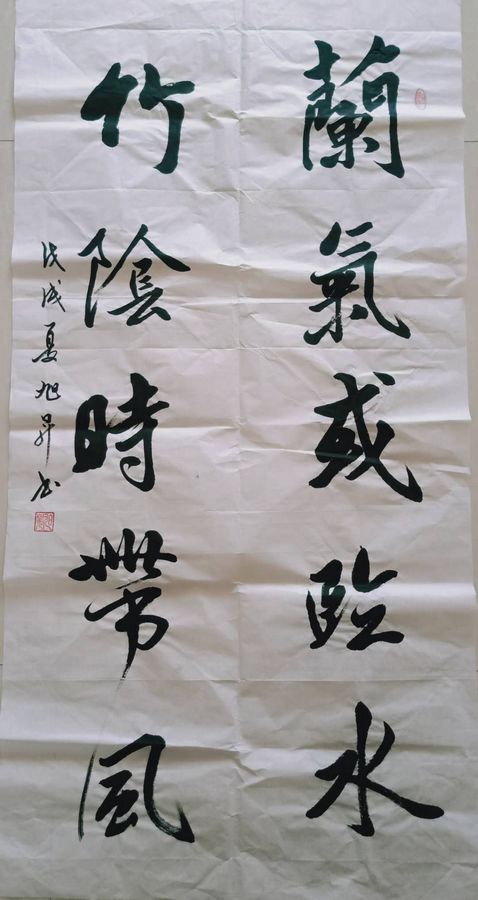 蘭氣或臨水
竹陰時帶風
戊戌夏旭昇书